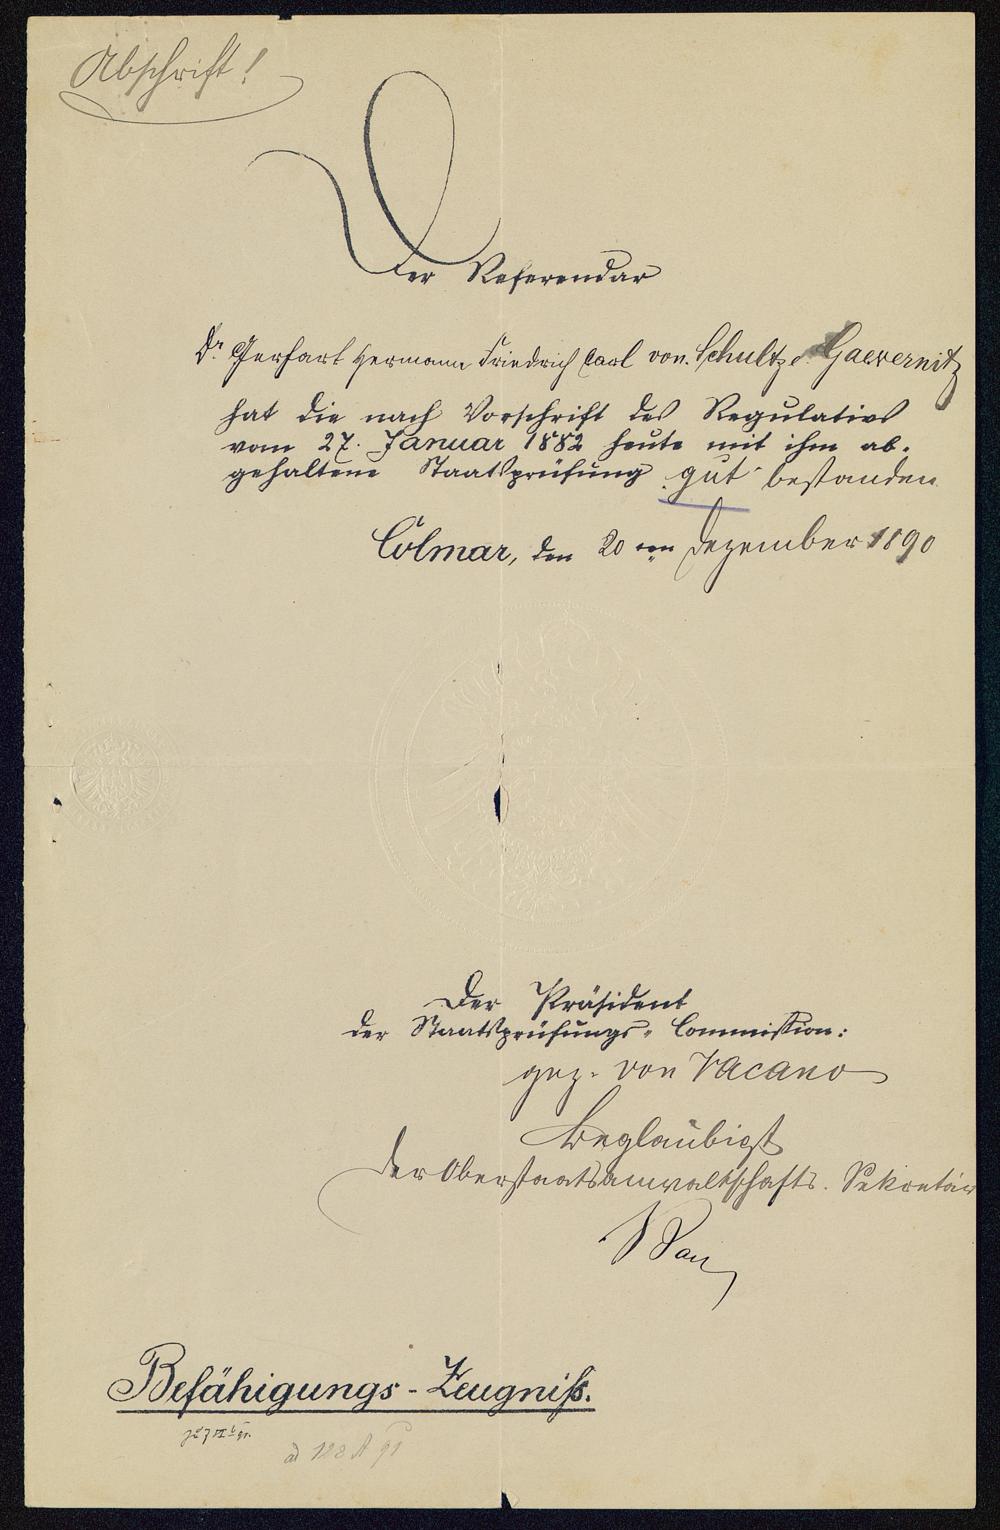 Abschrift!
Der Referendar
Dr Gerhart Hermann Friedrich Carl von Schultze Gaevernitz
hat die nach Vorschrift des Regulativs
vom 27. Januar 1882 heute mit ihm ab-
gehaltene Staatsprüfung gut bestanden
Colmar, den 20ten Dezember 1890
Der Präsident
der Staatsprüfungs-Commission:
gez. von Vacano
Beglaubigt
Der Oberstaatsanwaltschafts-Sekretär
Befähigungs-Zeugniß.
ad 128 A 91